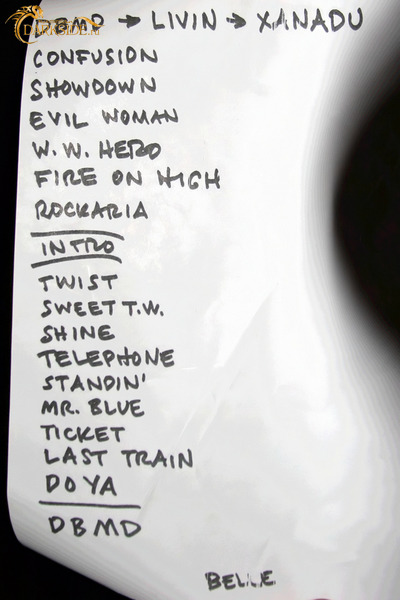 DBMD → LIVIN → XANADU
DARKSIDE.RU
CONFUSION
SHOWDOWN
EVIL WOMAN
W.W. HERO
FIRE ON HIGH
ROCKARIA
INTRO
TWIST
SWEET T.W.
SHINE
TELEPHONE
STANDIN'
MR. BLUE
TICKET
LAST TRAIN
DO YA
DBMD
BELLE